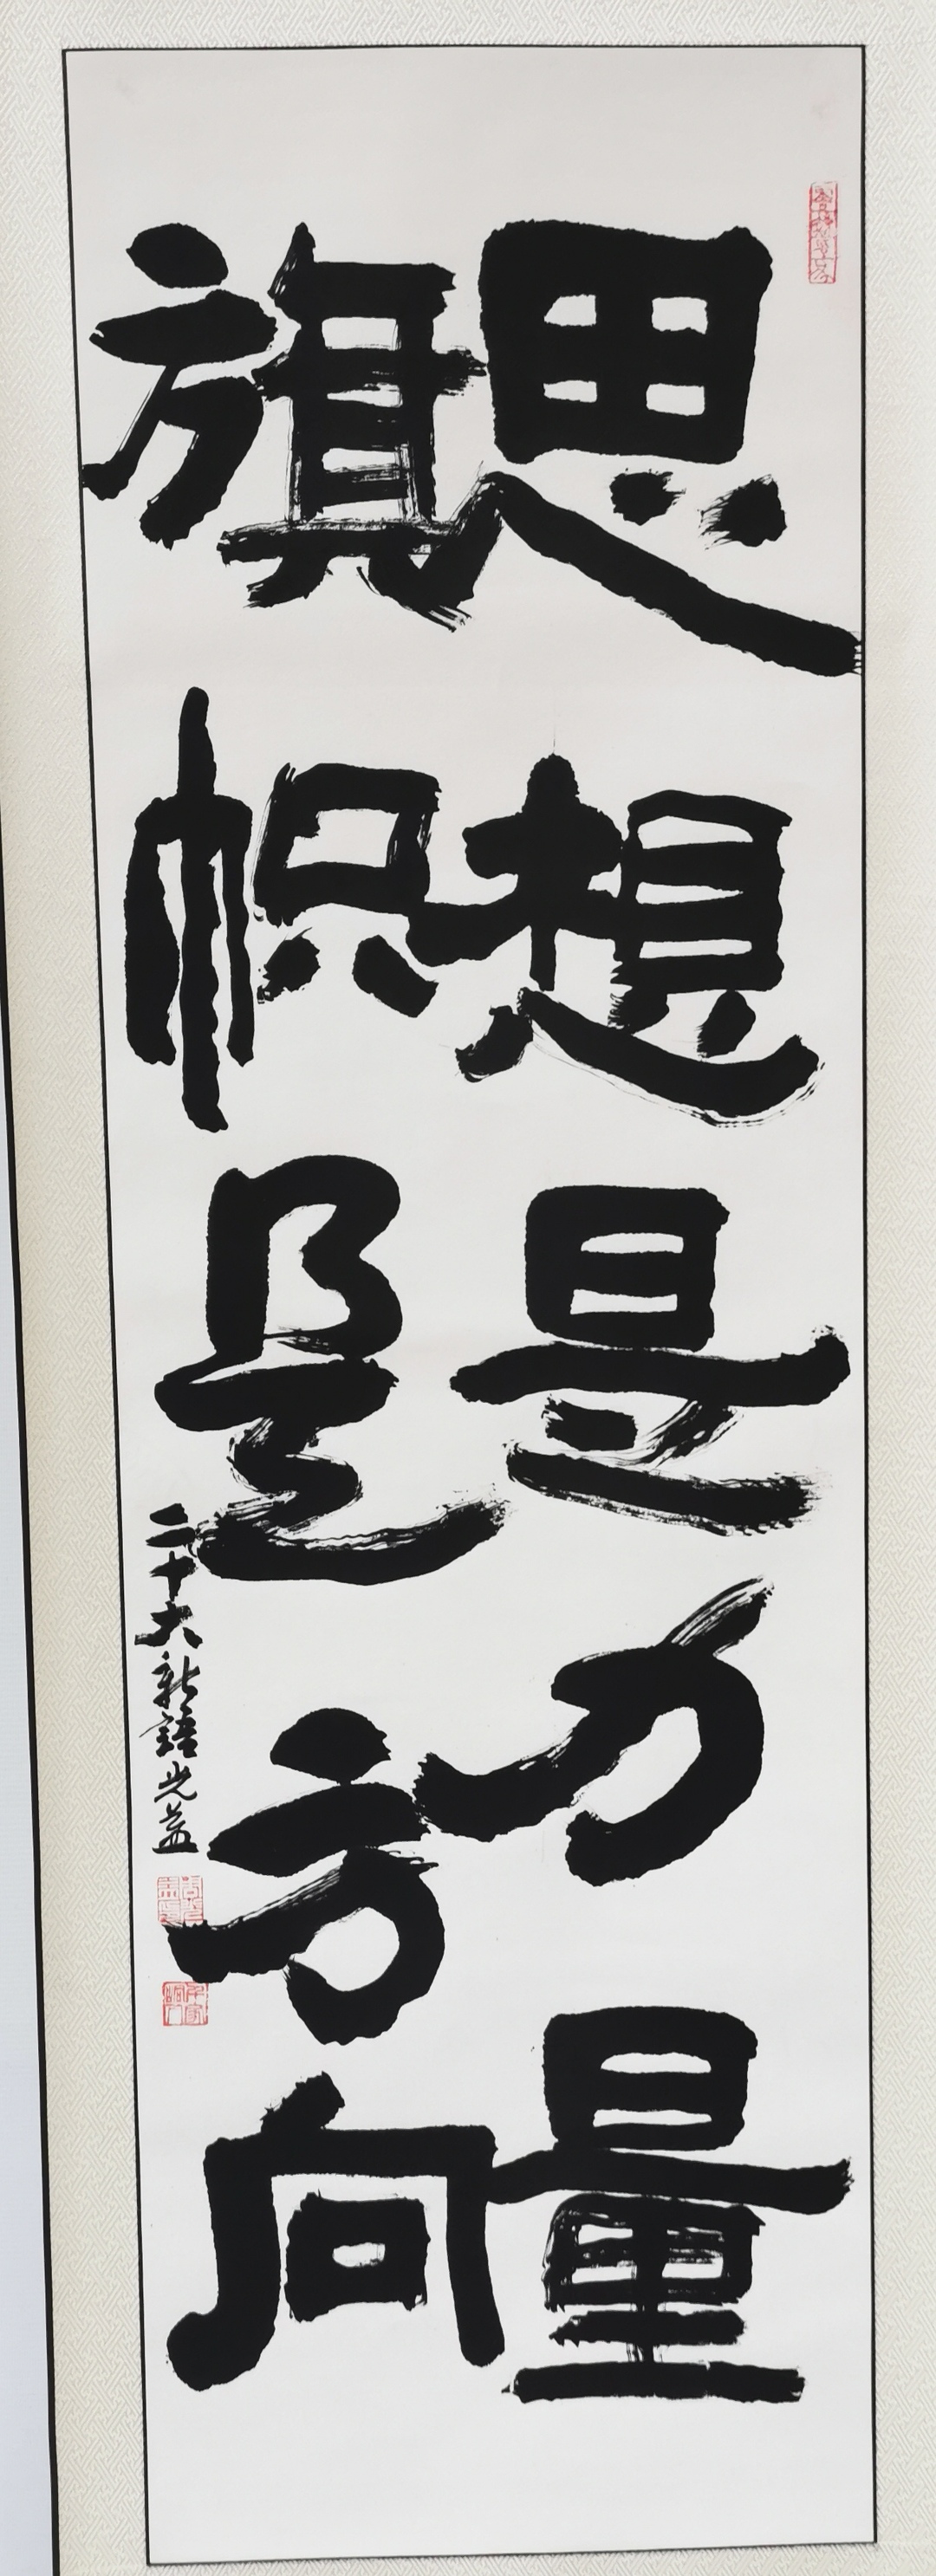 思想是力量
旗帜是方向
二十大新語光益